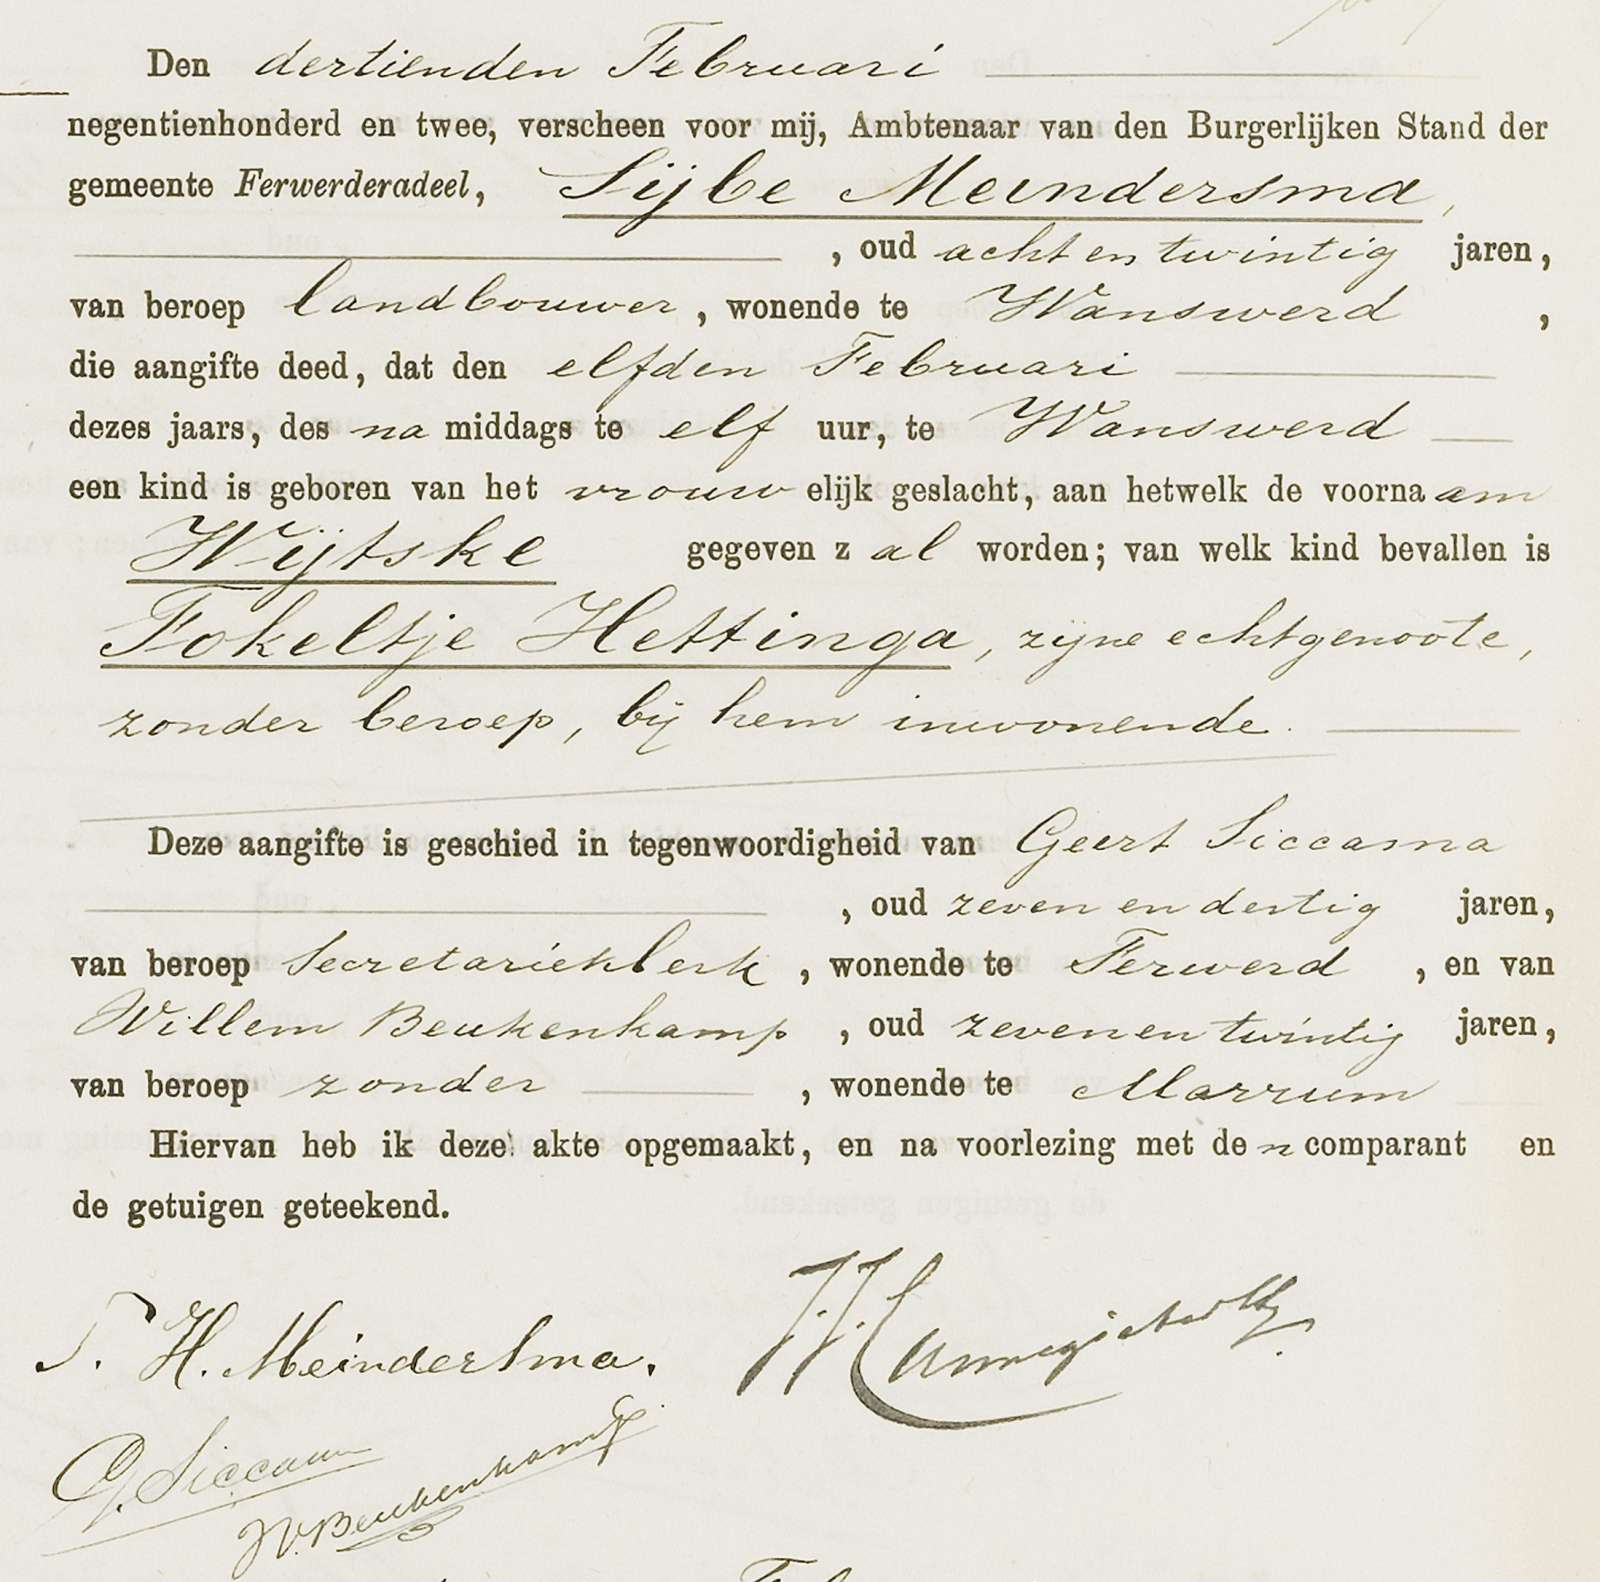 Den dertienden Februari
negentienhonderd en twee, verscheen voor mij, Ambtenaar van den Burgerlijken Stand der
gemeente Ferwerderadeel, Sijbe Meindersma,
, oud acht en twintig jaren,
van beroep landbouwer, wonende te Wanswerd,
die aangifte deed, dat den elfden Februari
dezes jaars, des na middags te elf uur, te Wanswerd
een kind is geboren van het vrouwelijk geslacht, aan hetwelk de voornaam
Wijtske gegeven zal worden; van welk kind bevallen is
Fokeltje Hettinga, zijne echtgenoote,
zonder beroep, bij hem inwonende.
Deze aangifte is geschied in tegenwoordigheid van Geert Siccama
, oud zeven en dertig jaren,
van beroep Secretarieklerk, wonende te Ferwerd, en van
Willem Beukenkamp, oud zeven en twintig jaren,
van beroep zonder, wonende te Marrum
Hiervan heb ik deze akte opgemaakt, en na voorlezing met den comparant en
de getuigen geteekend.
S. H. Meindersma.
G. Siccama
W. Beukenkamp